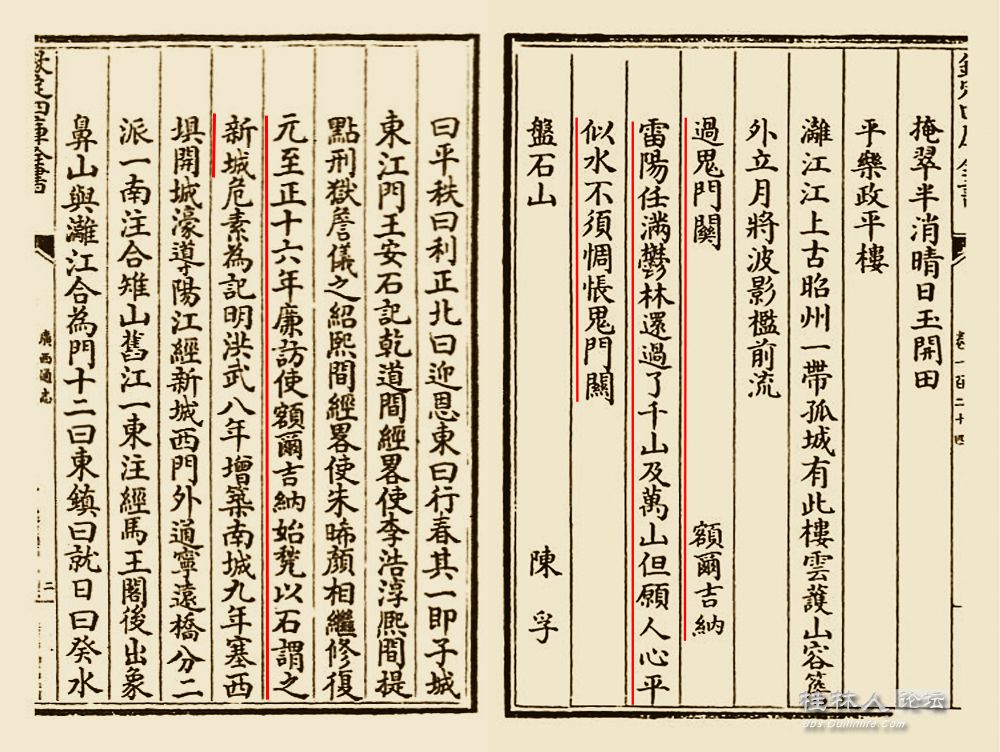 欽定四庫全書
卷一百二十四
掩翠半消晴日玉開田
平樂政平樓
灕江江上古昭州一帶孤城有此樓雲護山容簷
外立月將波影檻前流
過鬼門關　額爾吉納
雷陽任滿鬱林還過了千山及萬山但願人心平
似水不須惆悵鬼門關
盤石山　陳孚
曰平秩曰利正北曰迎恩東曰行春其一即子城
東江門王安石記乾道間經畧使李浩淳熙間提
點刑獄詹儀之紹熙間經畧使朱晞顏相繼修復
元至正十六年廉訪使額爾吉納始甃以石謂之
新城危素為記明洪武八年增築南城九年塞西
埧開城濠導陽江經新城西門外通寧遠橋分二
派一南注合雉山舊江一東注經馬王閣後出象
鼻山與灕江合為門十二曰東鎮曰就日曰癸水
欽定四庫全書
廣西通志
桂林人论坛
bbs.guilinlife.com